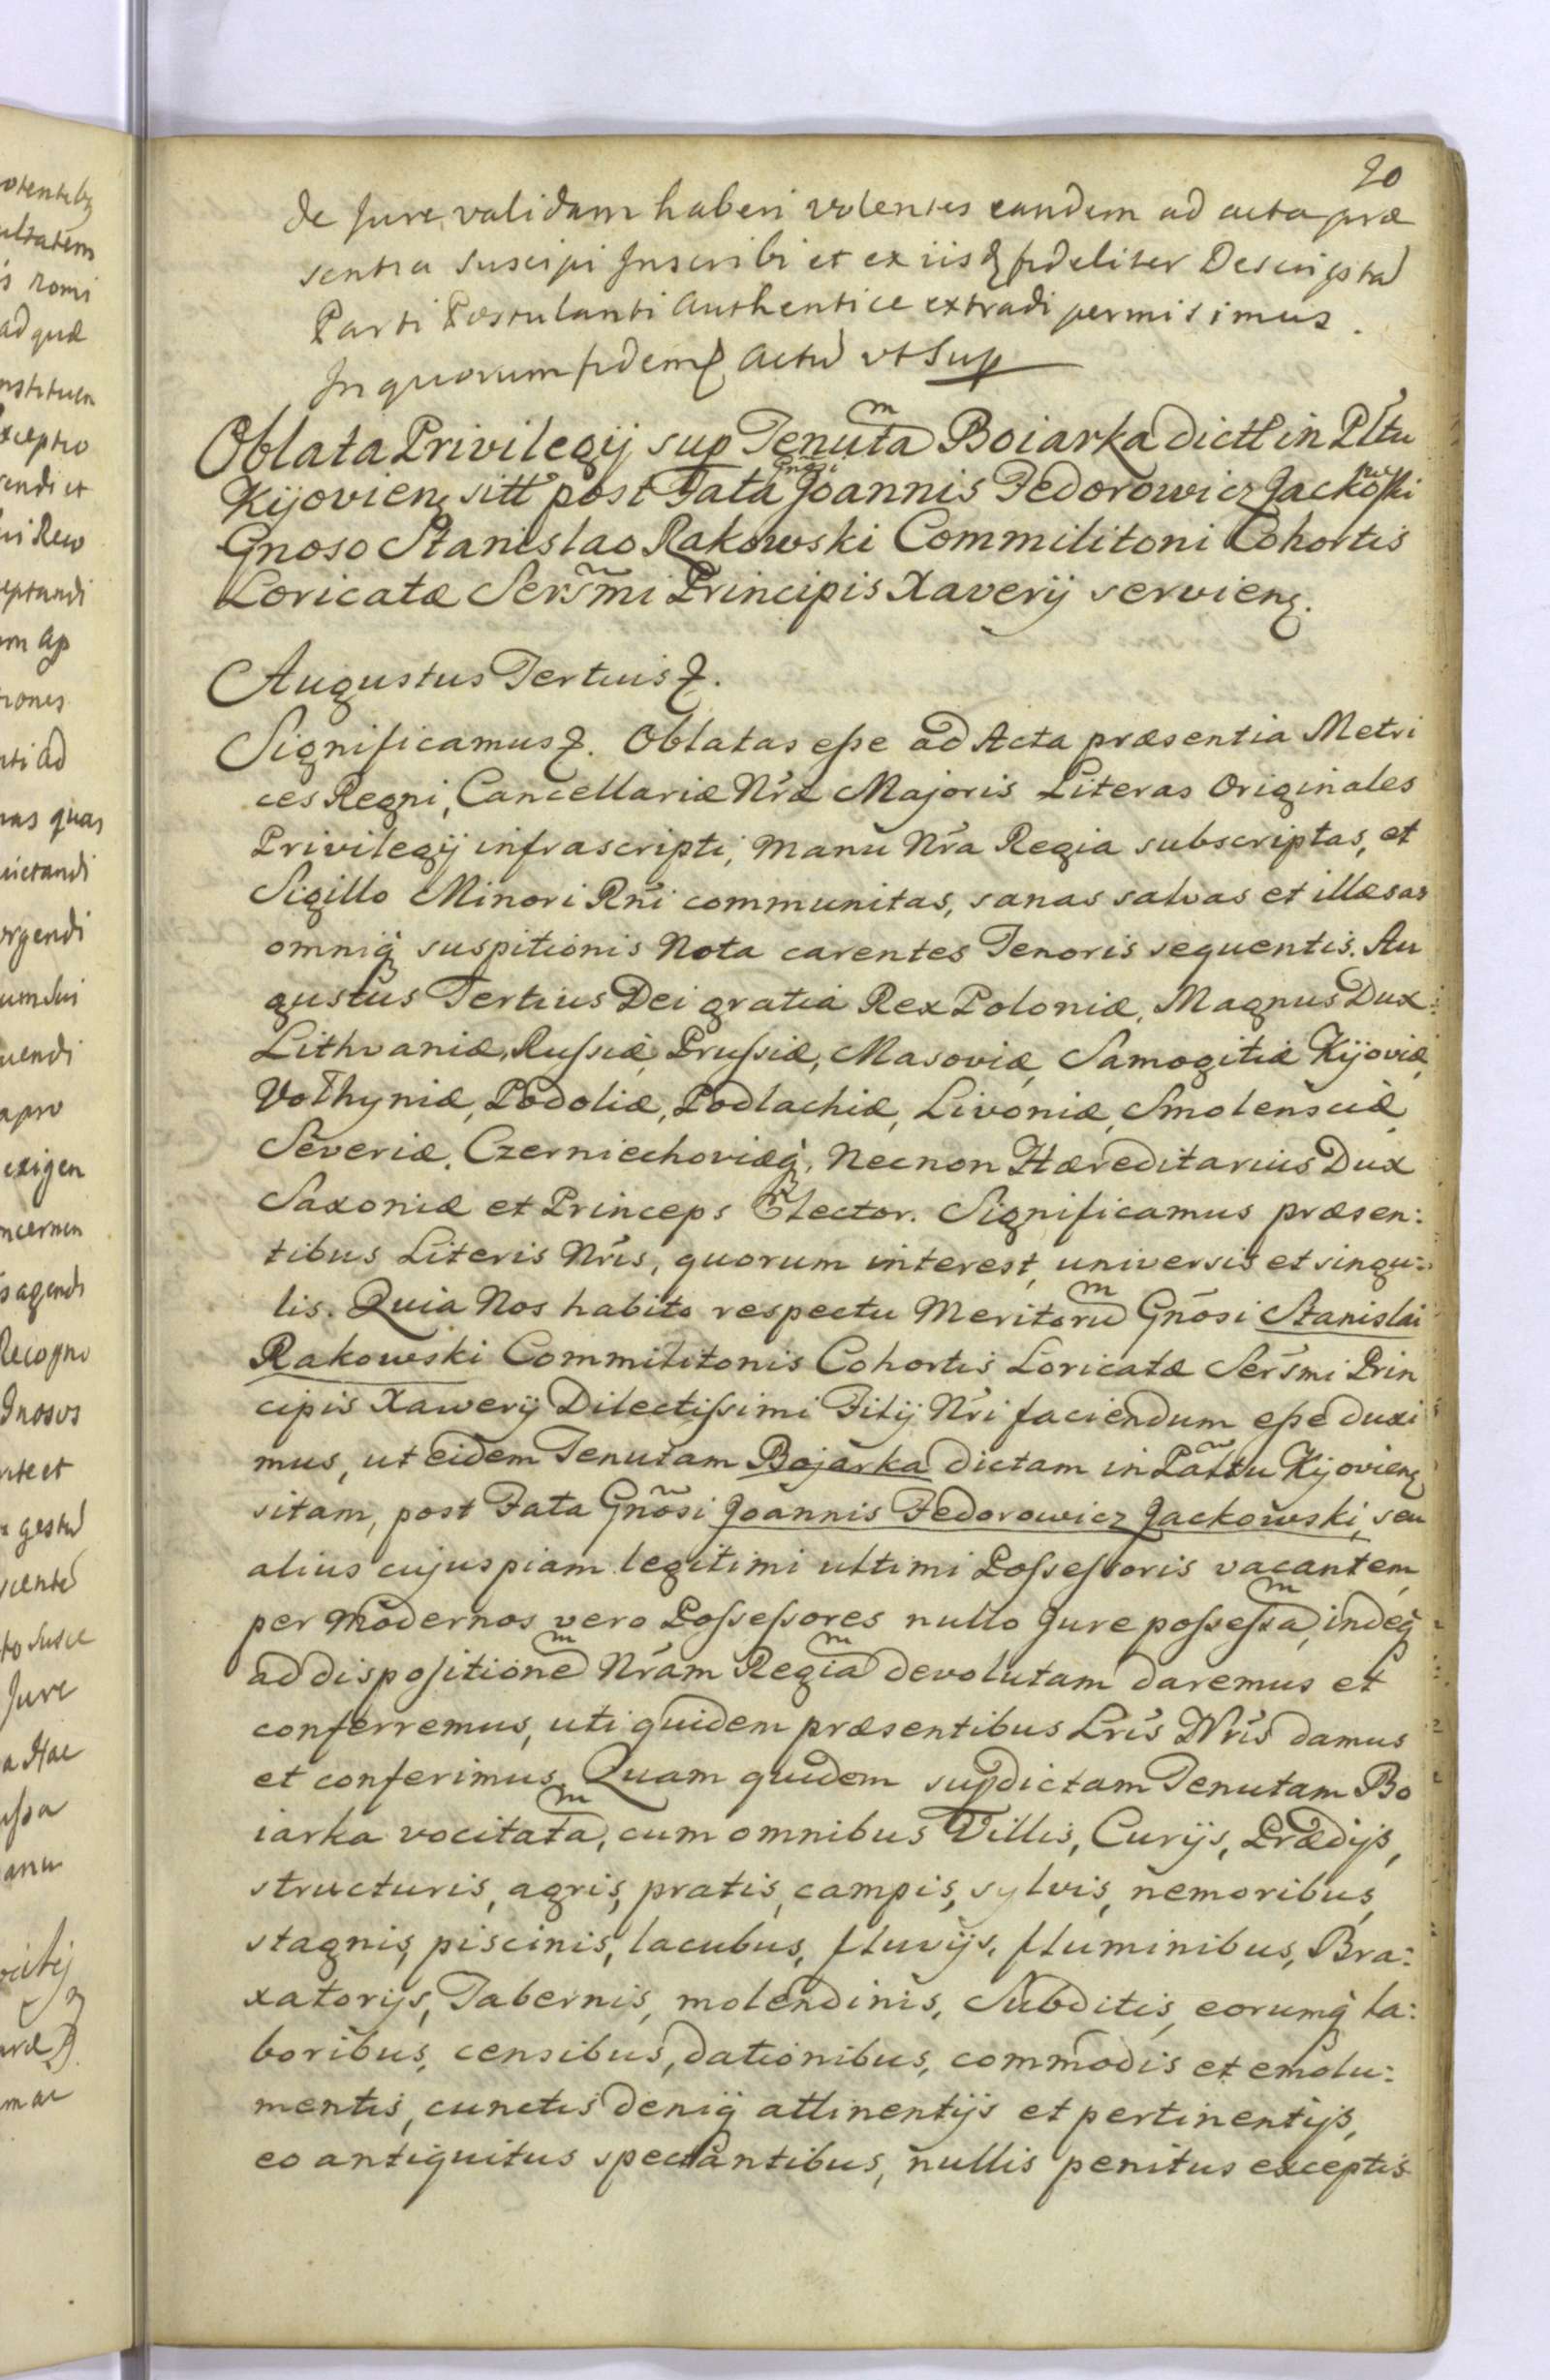 20
de Jure validam haberi volentes eandem ad acta præ
sentia suscipi Inscribi et ex iisq fideliter Descripta
Parti Postulanti Authentice extradi permisimus.
In quorum fidem Actu ut Sup
Oblata Privilegij sup Tenutam Boiarka dictt in Pltu
Kijovien sitt post Fata Gnosi Joannis Fedorowicz Jackowski
Gnoso Stanislao Rakowski Commilitoni Cohortis
Loricatæ Sersmi Principis Xaverij servien.
Augustus Tertius.
Significamus. Oblatas esse ad Acta præsentia Metri
ces Regni, Cancellariæ Nræ Majoris Literas Originales
Privilegij infrascripti, manu Nra Regia subscriptas, et
Sigillo Minori Rni communitas, sanas salvas et illæsas
omniq suspitionis Nota carentes Tenoris sequentis. Au
gustus Tertius Dei gratia Rex Poloniæ, Magnus Dux
Lithvaniæ, Russiæ, Prussiæ, Masoviæ, Samogitiæ Kijoviæ,
Volhyniæ, Podoliæ, Podlachiæ, Livoniæ, Smolensciæ,
Severiæ, Czerniechoviæq, Necnon Hæreditarius Dux
Saxoniæ et Princeps Elector. Significamus præsen:
tibus Literis Nris, quorum interest, universis et singu:
lis. Quia Nos habito respectu Meritorum Gnosi Stanislai
Rakowski Commilitonis Cohortis Loricatæ Sersmi Prin
cipis Xawerij Dilectissimi Filij Nri faciendum esse duxi
mus, ut eidem Tenutam Bojarka dictam in Palttu Kijovien
sitam, post Fata Gnosi Joannis Fedorowicz Jackowski, seu
alius cujuspiam legitimi ultimi Possessoris vacantem,
per modernos vero Possessores nullo Jure possessam, indeq
ad dispositionem Nram Regiam devolutam daremus et
conferremus, uti quidem præsentibus Lris Nris damus
et conferimus. Quam quidem supdictam Tenutam Bo
iarka vocitatam, cum omnibus Villis, Curijs, Prædijs,
structuris, agris, pratis, campis, sylvis, nemoribus,
stagnis, piscinis, lacubus, fluvijs, fluminibus, Bra:
xatorijs, Tabernis, molendinis, Subditis, eorumq la:
boribus, censibus, dationibus, commodis et emolu:
mentis, cunctis deniq attinentijs et pertinentijs,
eo antiquitus spectantibus, nullis penitus exceptis